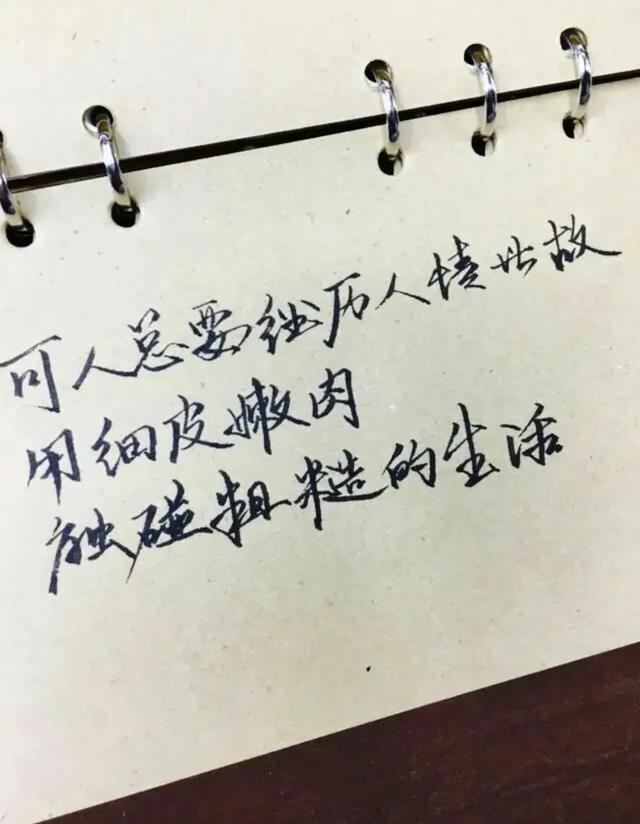 可人总要经历人情世故
用细皮嫩肉
触碰粗糙的生活